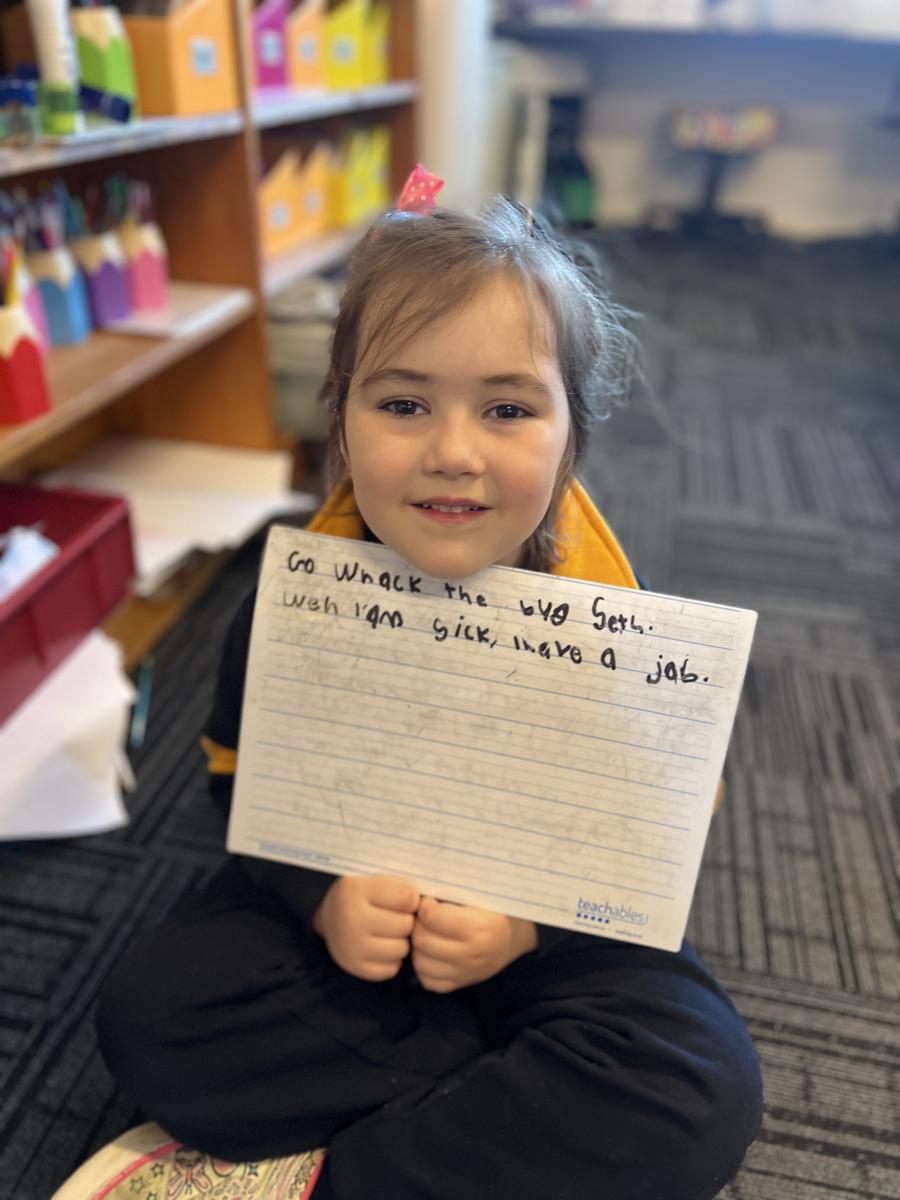 Go whack the bug Seth.
Weh I'am sick, I have a jab.
teachables